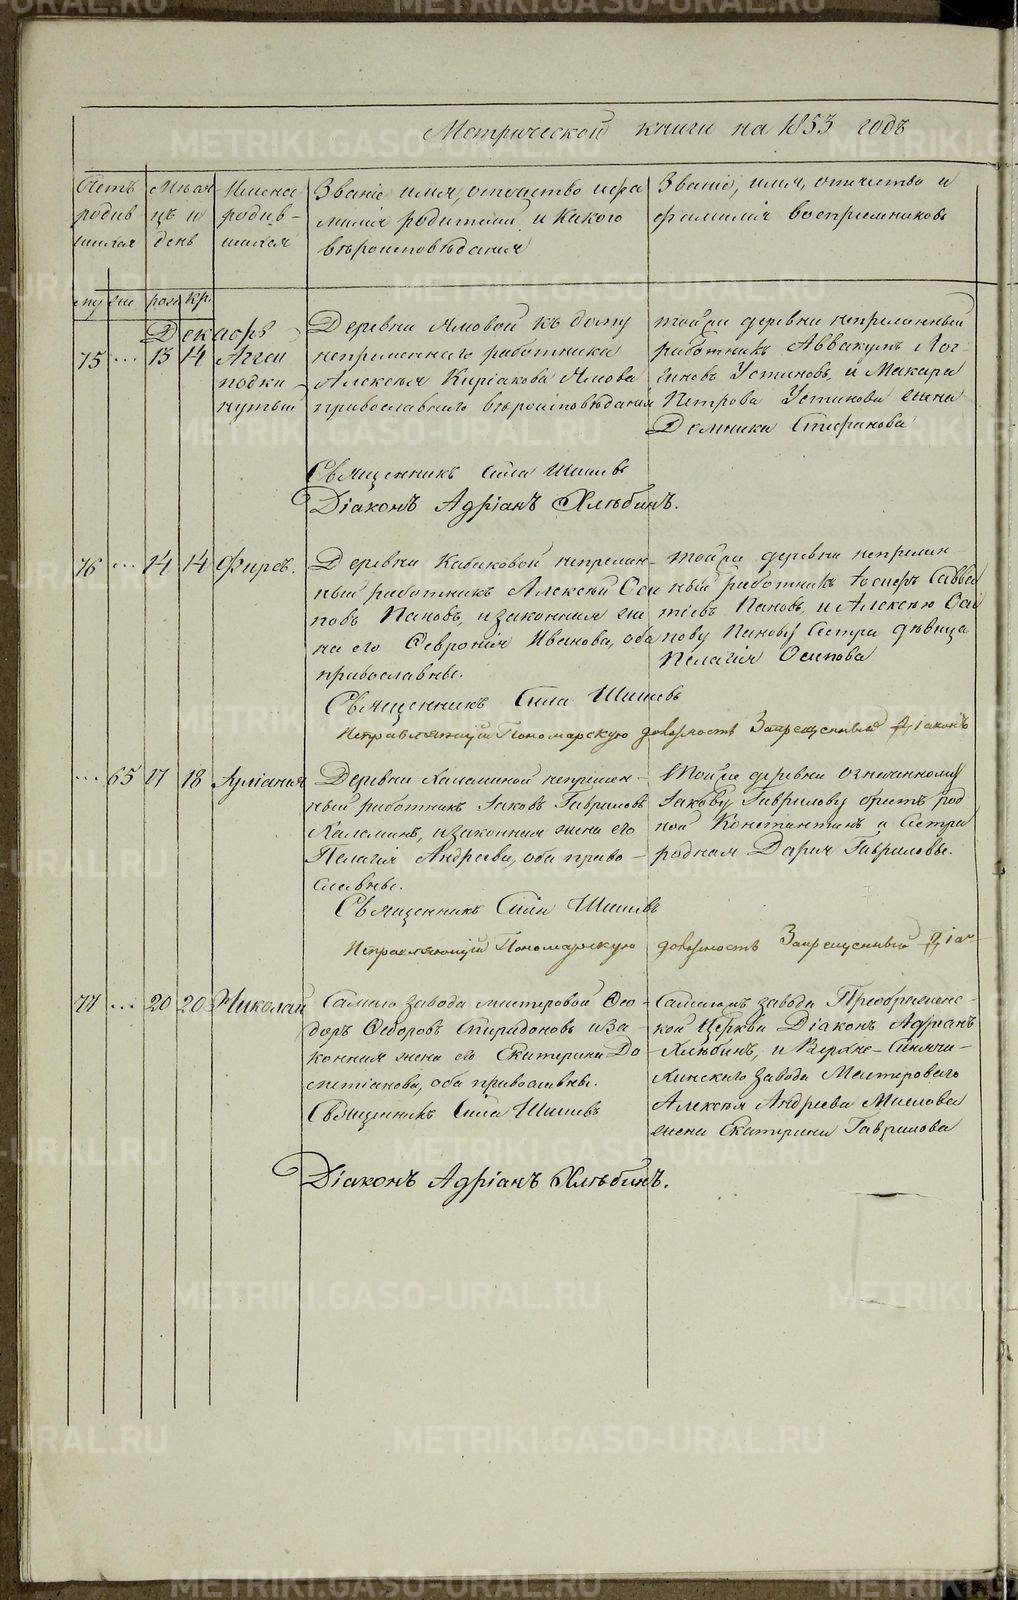 Метрической книги на 1853 годъ
Счетъ родив шихся
Мѣсяцъ и день
Имена родив- шихся
Званіе, имя, отчество и фа
милія родителей, и какого
вѣроисповѣданія
Званіе, имя, отчество и
фамилія воспріемниковъ
му же рож кр.
Декабрь
75 ... 13 14 Аггей
подки
нутый
Деревни Ямовой къ дому
непременнаго работника
Алексѣя Киріакова Ямова
православнаго вѣроисповѣданія
тойже деревни непременный
работникъ Аввакумъ Лог-
гиновъ Устиновъ, и Макара
Петрова Устинова жена
Домника Стефанова
Священникъ Сила Шишевъ
Діаконъ Адріанъ Хлѣбинъ.
76 ... 14 14 Фирсъ.
Деревни Кабаковой непремен-
ный работникъ Алексѣй Оси
повъ Пановъ, и законная же
на его Февронія Иванова, оба
православные.
тойже деревни непремен-
ный работникъ Іосифъ Савва
тіевъ Пановъ, и Алексѣю Оси
пову Панову сестра дѣвица
Пелагія Осипова
Священникъ Сила Шишевъ
Исправляющій Пономарскую должность Запрещенный Діаконъ
... 65 17 18 Іуліанія
Деревни Каламиной непремен-
ный работникъ Іаковъ Гавриловъ
Каламинъ, и законная жена его
Пелагія Андреева, оба право-
славные.
Тойже деревни означенному
Іакову Гаврилову братъ род
ной Константинъ и сестра
родная Дарія Гавриловы.
Священникъ Сила Шишевъ
Исправляющій Пономарскую должность Запрещенный Діак
77 ... 20 20 Николай
Самаго завода мастеровой Ѳео-
доръ Ѳедоровъ Спиридоновъ и за-
конная жена его Екатерина До
метіанова, оба православные.
Священникъ Сила Шишевъ
Самагожъ завода Преображенс-
кой Церкви Діаконъ Адріанъ
Хлѣбинъ, и Верхне-Синячи-
хинскаго завода Мастероваго
Алексѣя Андреева Маслова
жена Екатерина Гаврилова
Діаконъ Адріанъ Хлѣбинъ.
METRIKI.GASO-URAL.RU